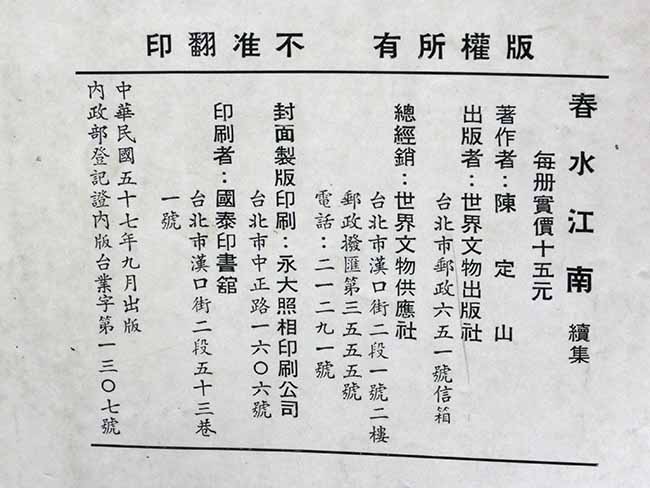 版權所有　不准翻印
春水江南 續集
每册實價十五元
著作者：陳定山
出版者：世界文物出版社
台北市郵政六五一號信箱
總經銷：世界文物供應社
台北市漢口街二段一號二樓
郵政撥匯第三五五五號
電話：二一二九一號
封面製版印刷：永大照相印刷公司
台北市中正路一六〇六號
印刷者：國泰印書館
台北市漢口街二段五十三巷
一號
中華民國五十七年九月出版
內政部登記證內版台業字第一三〇七號